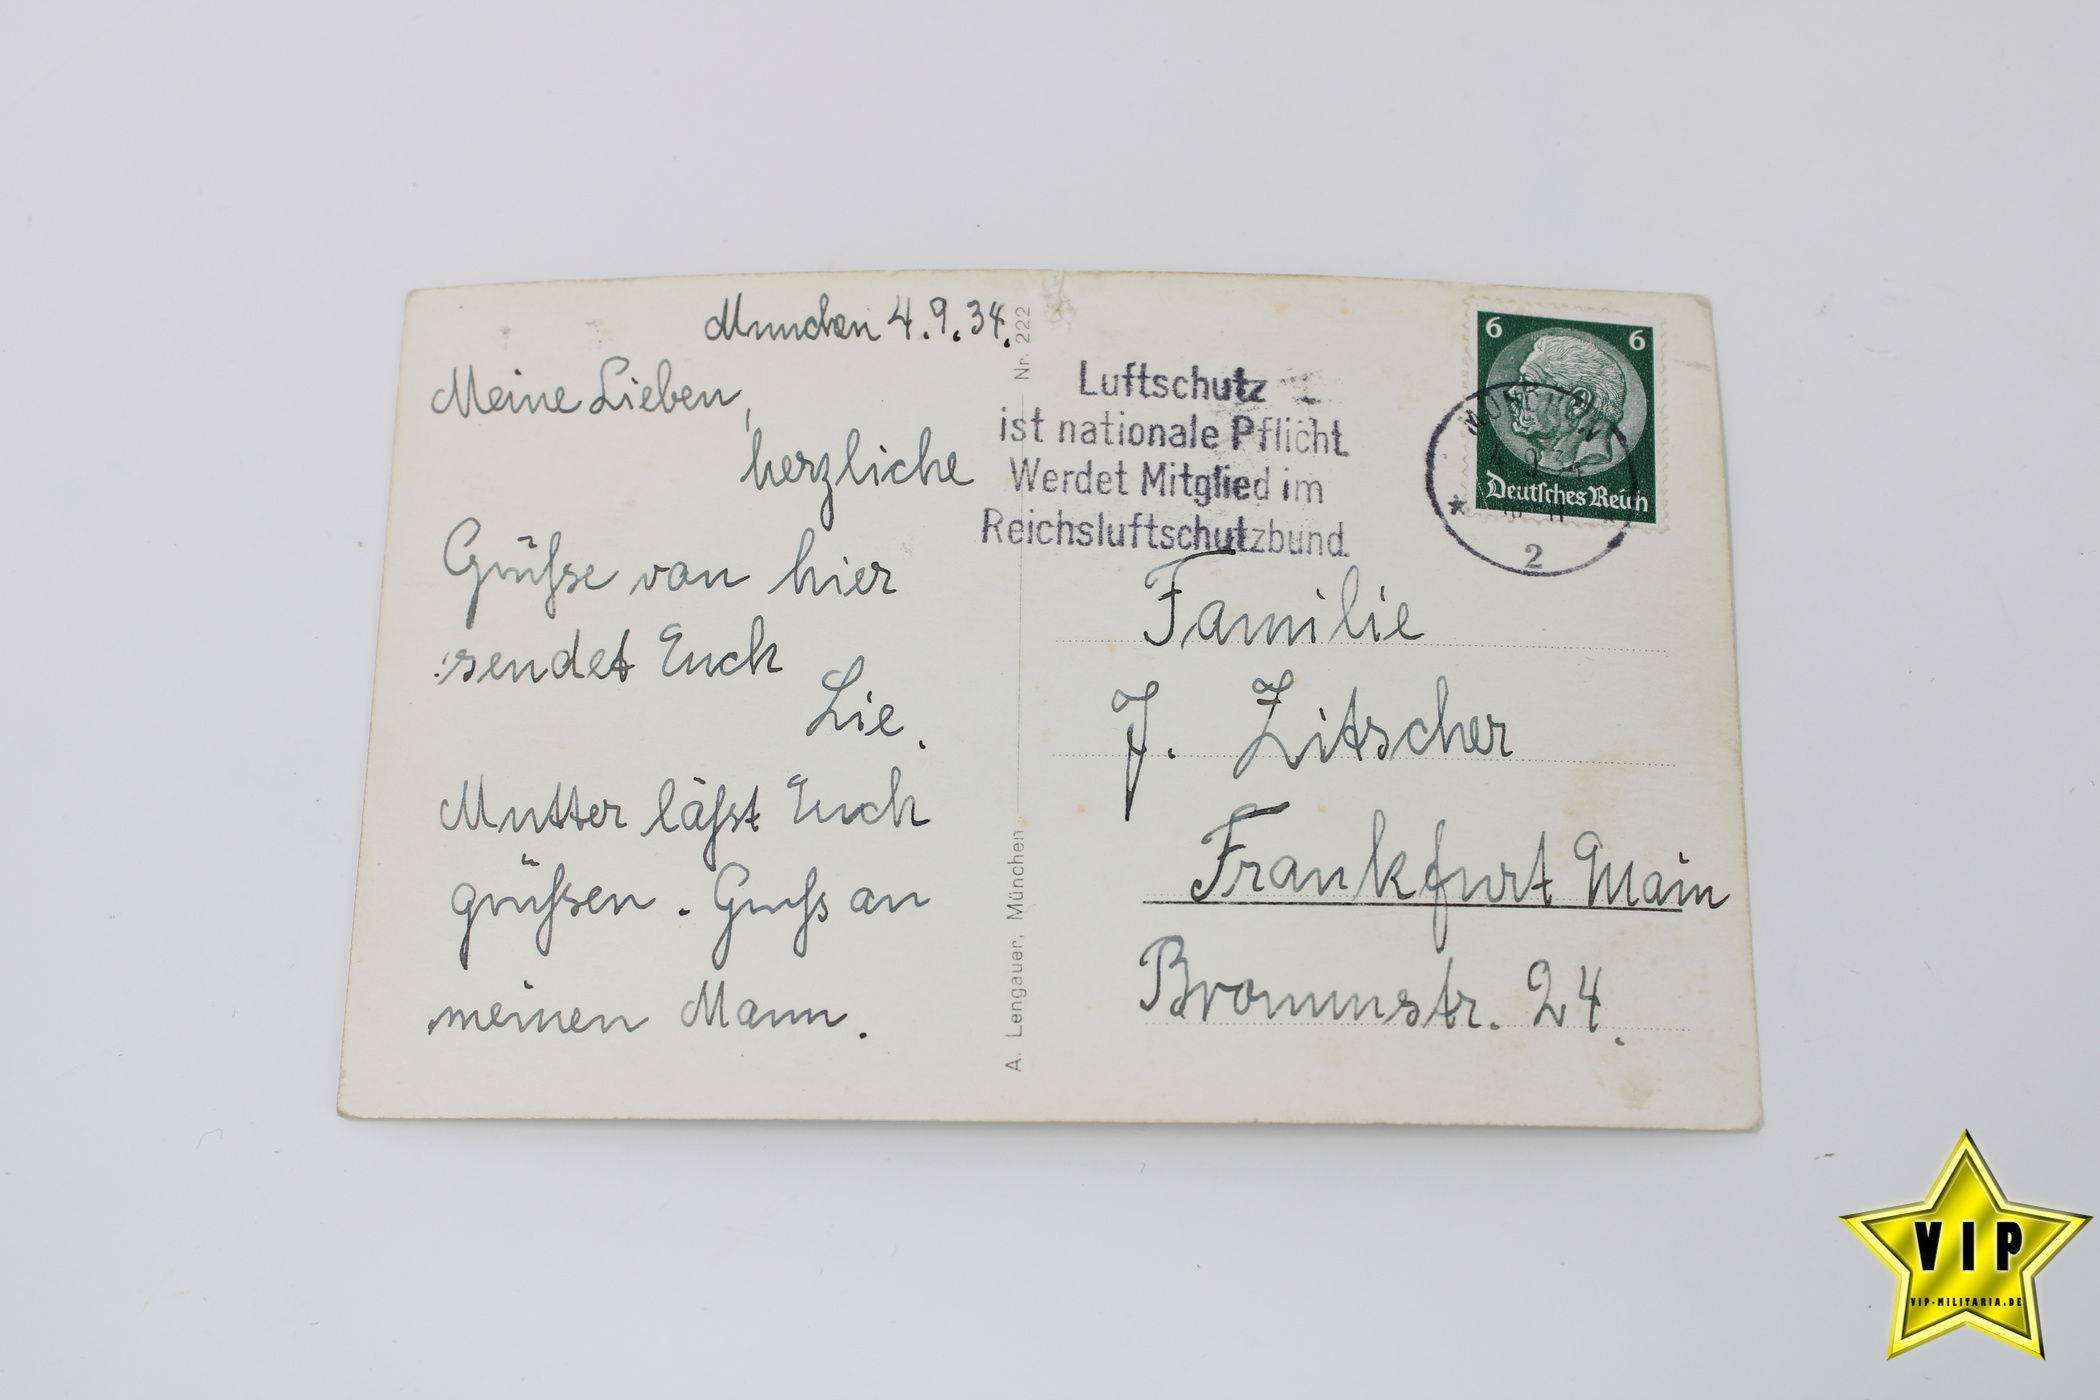 Munchen 4.9.34.
Meine Lieben,
herzliche
Grüße von hier
sendet Euch
Lie.
Mutter läßt Euch
grüßen. Gruß an
meinen Mann.
Nr. 222
A. Lengauer, München
Luftschutz
ist nationale Pflicht.
Werdet Mitglied im
Reichsluftschutzbund.
6 6
Deutsches Reich
MÜNCHEN
4.9.34
2
Familie
J. Zitscher
Frankfurt Main
Brommstr. 24.
VIP
VIP-MILITARIA.DE